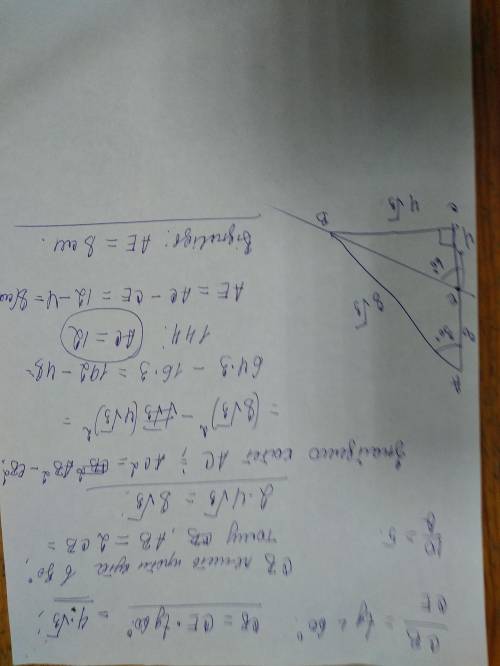 CB/CE = tg 60°; CB = CE · tg60° = 4·√3;
CB лежить проти кута в 30°,
тому AB = 2CB =
2·4√3 = 8√3;
Знайдемо катет AC; AC² = AB² - CB²
= (8√3)² - (4√3)² =
64·3 - 16·3 = 192 - 48 =
144; AC = 12
AE = AC - CE = 12 - 4 = 8см
Відповідь: AE = 8 см.
A
8√3
B
4√3
C